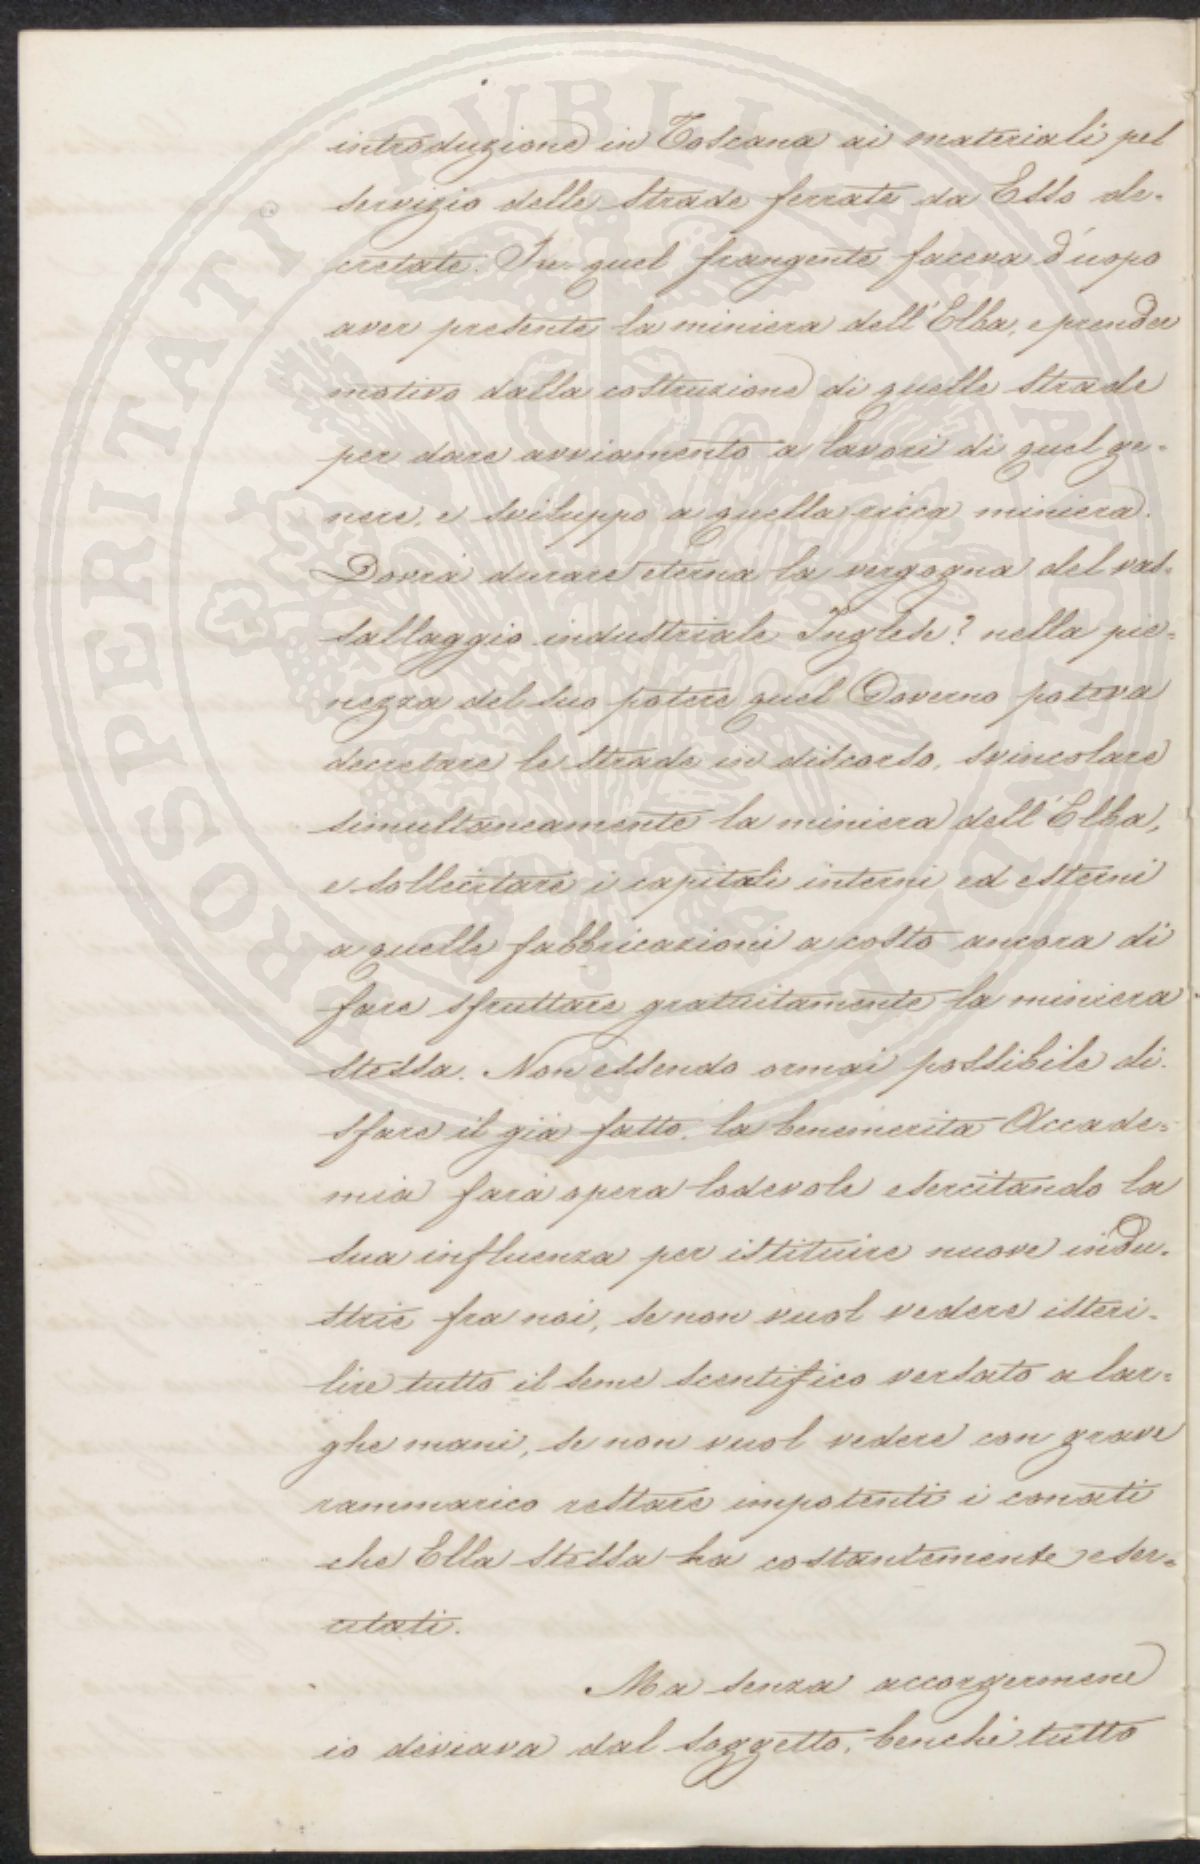 introduzione in Toscana ai materiali pel
servizio delle strade ferrate da Esso de-
cretate. In quel frangente faceva d'uopo
aver presente la miniera dell'Elba, e prender
motivo dalla costruzione di quelle strade
per dare avviamento a lavori di quel ge-
nere, e sviluppo a quella ricca miniera.
Dovrà durare eterna la vergogna del vas-
sallaggio industriale Inglese? nella pie-
nezza del suo potere quel Governo poteva
decretare le strade in discorso, svincolare
simultaneamente la miniera dell'Elba,
e sollecitare i capitali interni ed esterni
a quelle fabbricazioni a costo ancora di
fare sfruttare gratuitamente la miniera
stessa. Non essendo ormai possibile di-
sfare il già fatto, la benemerita Accade-
mia farà opera lodevole esercitando la
sua influenza per istituire nuove indu-
strie fra noi, se non vuol vedere isteri-
lire tutto il seme scentifico versato a lar-
ghe mani, se non vuol vedere con grave
rammarico restare impotenti i conati
che Ella stessa ha costantemente eser-
citati.
Ma senza accorgermene
io deviava dal soggetto, benchè tutto
PROSPERITATI PUBLICAE AUGENDAE